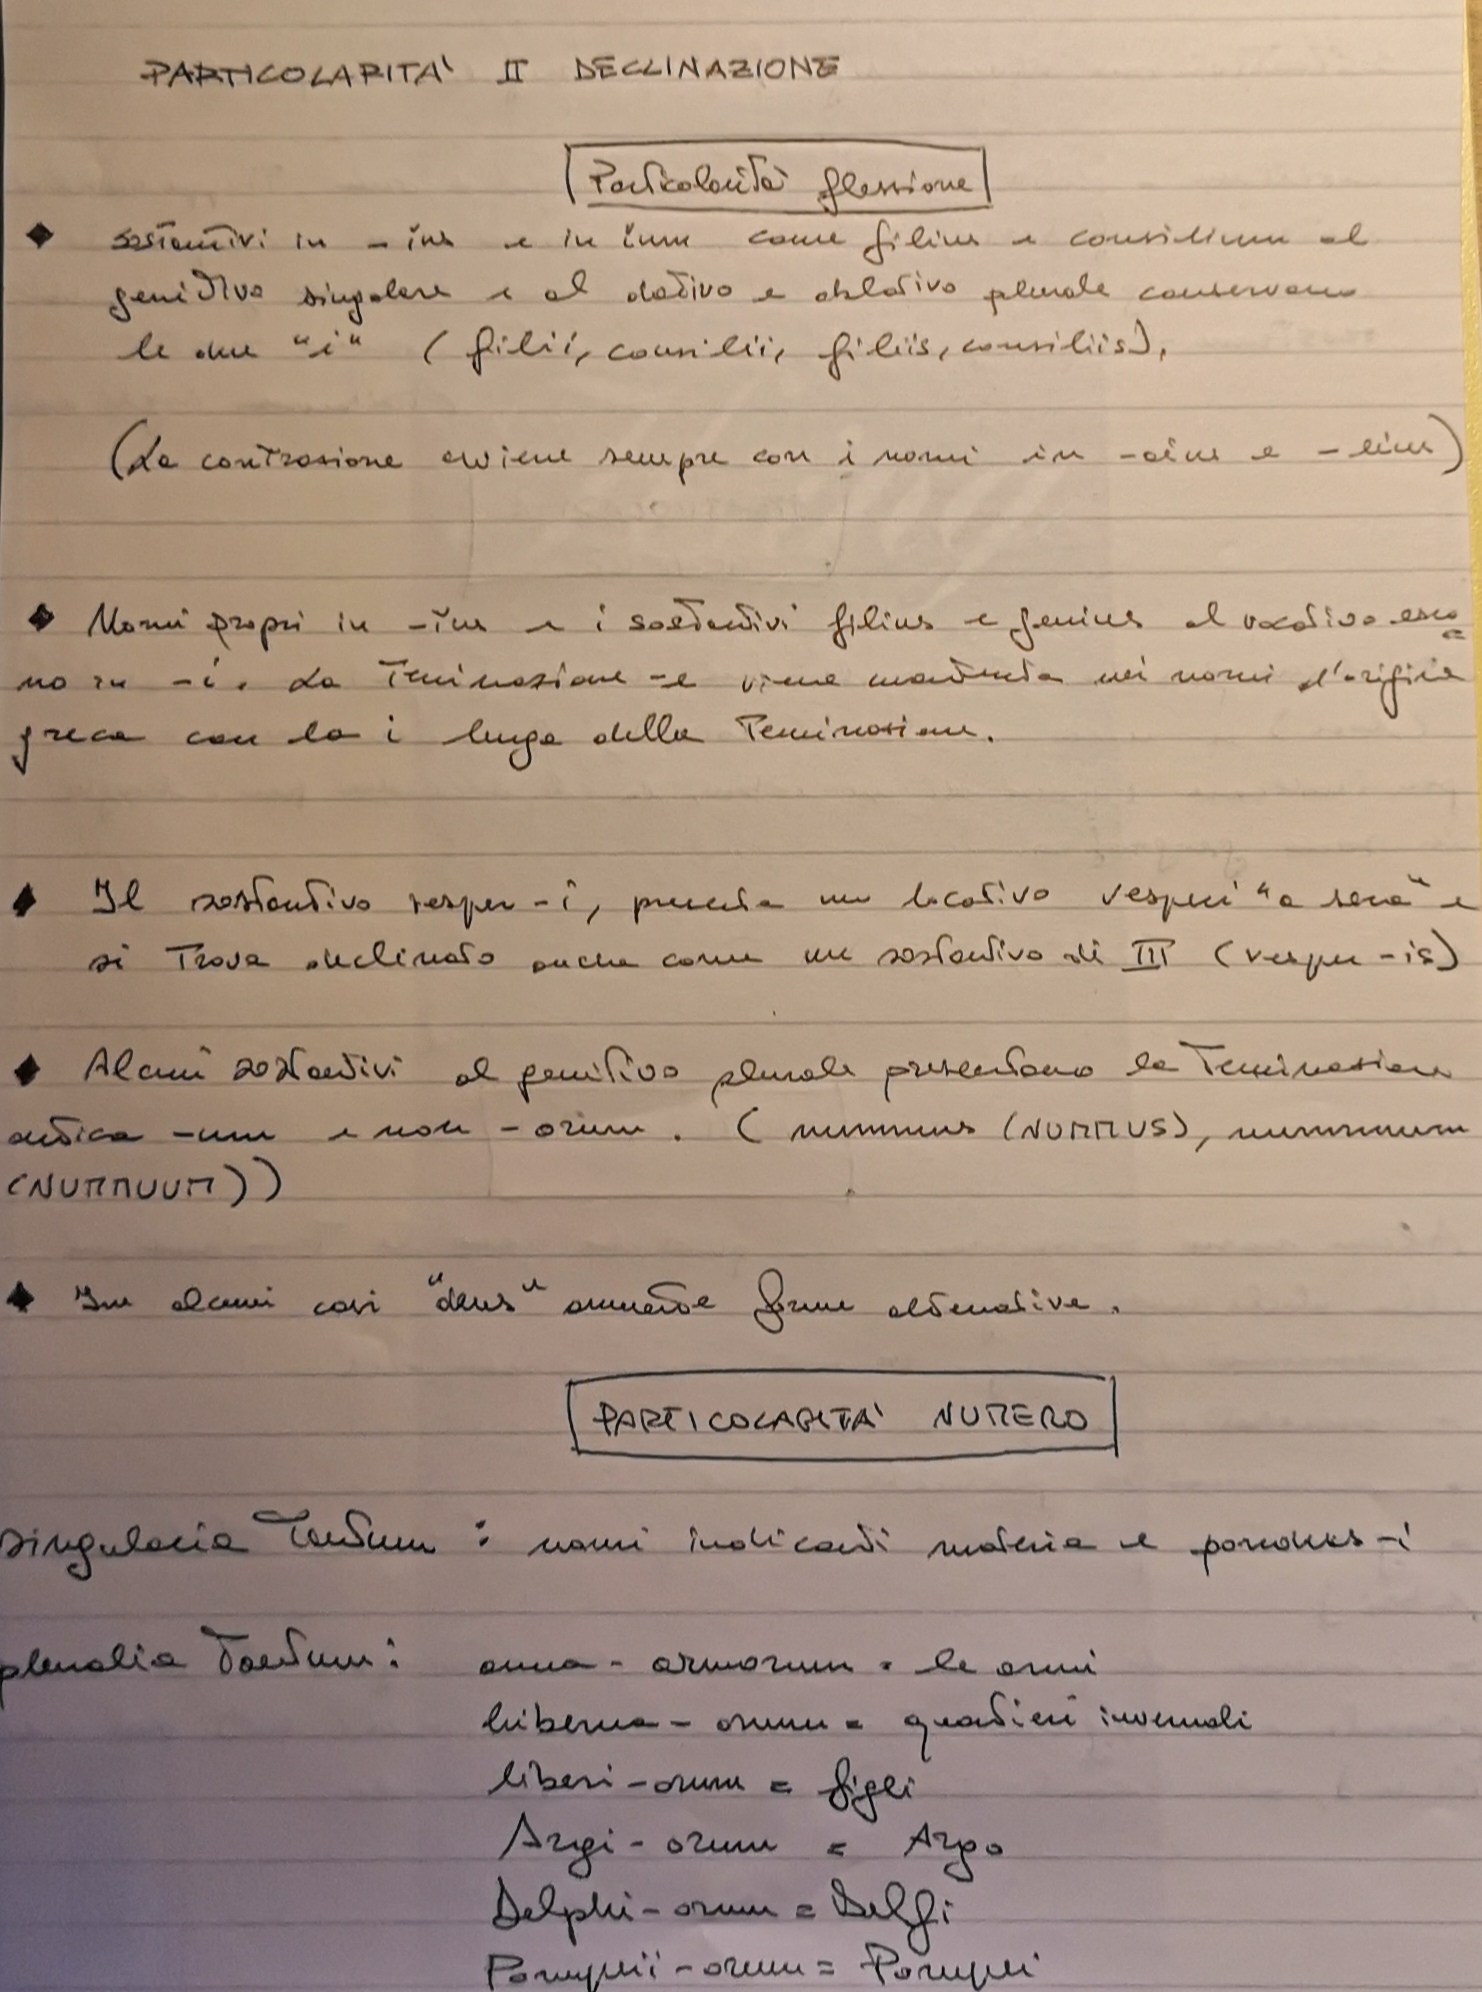 PARTICOLARITA' II DECLINAZIONE
Particolarità flessione
sostantivi in -ĭus e in ĭum come filius e consilium al
genitivo singolare e al dativo e ablativo plurale conservano
le due "i" (filii, consilii, filiis, consiliis).
(La contrazione avviene sempre con i nomi in -aius e -eius)
Nomi propri in -ĭus e i sostantivi filius e genius al vocativo esco
no in -i. La terminazione -e viene mantenuta nei nomi d'origine
greca con la i lunga della terminazione.
Il sostantivo vesper -i, presenta un locativo vesperi "a sera" e
si trova declinato anche come un sostantivo di III (vesper -is)
Alcuni sostantivi al genitivo plurale presentano la terminazione
antica -um e non -orum. (nummus (NUMMUS), nummuum
(NUMMUUM))
In alcuni casi "deus" ammette forme alternative.
PARTICOLARITA' NUMERO
singularia Tantum : nomi indicanti materia e -i
pluralia Tantum : arma - armorum = le armi
hiberna - orum = quartieri invernali
liberi - orum = figli
Argi - orum = Argo
Delphi - orum = Delfi
Pompeii - orum = Pompei